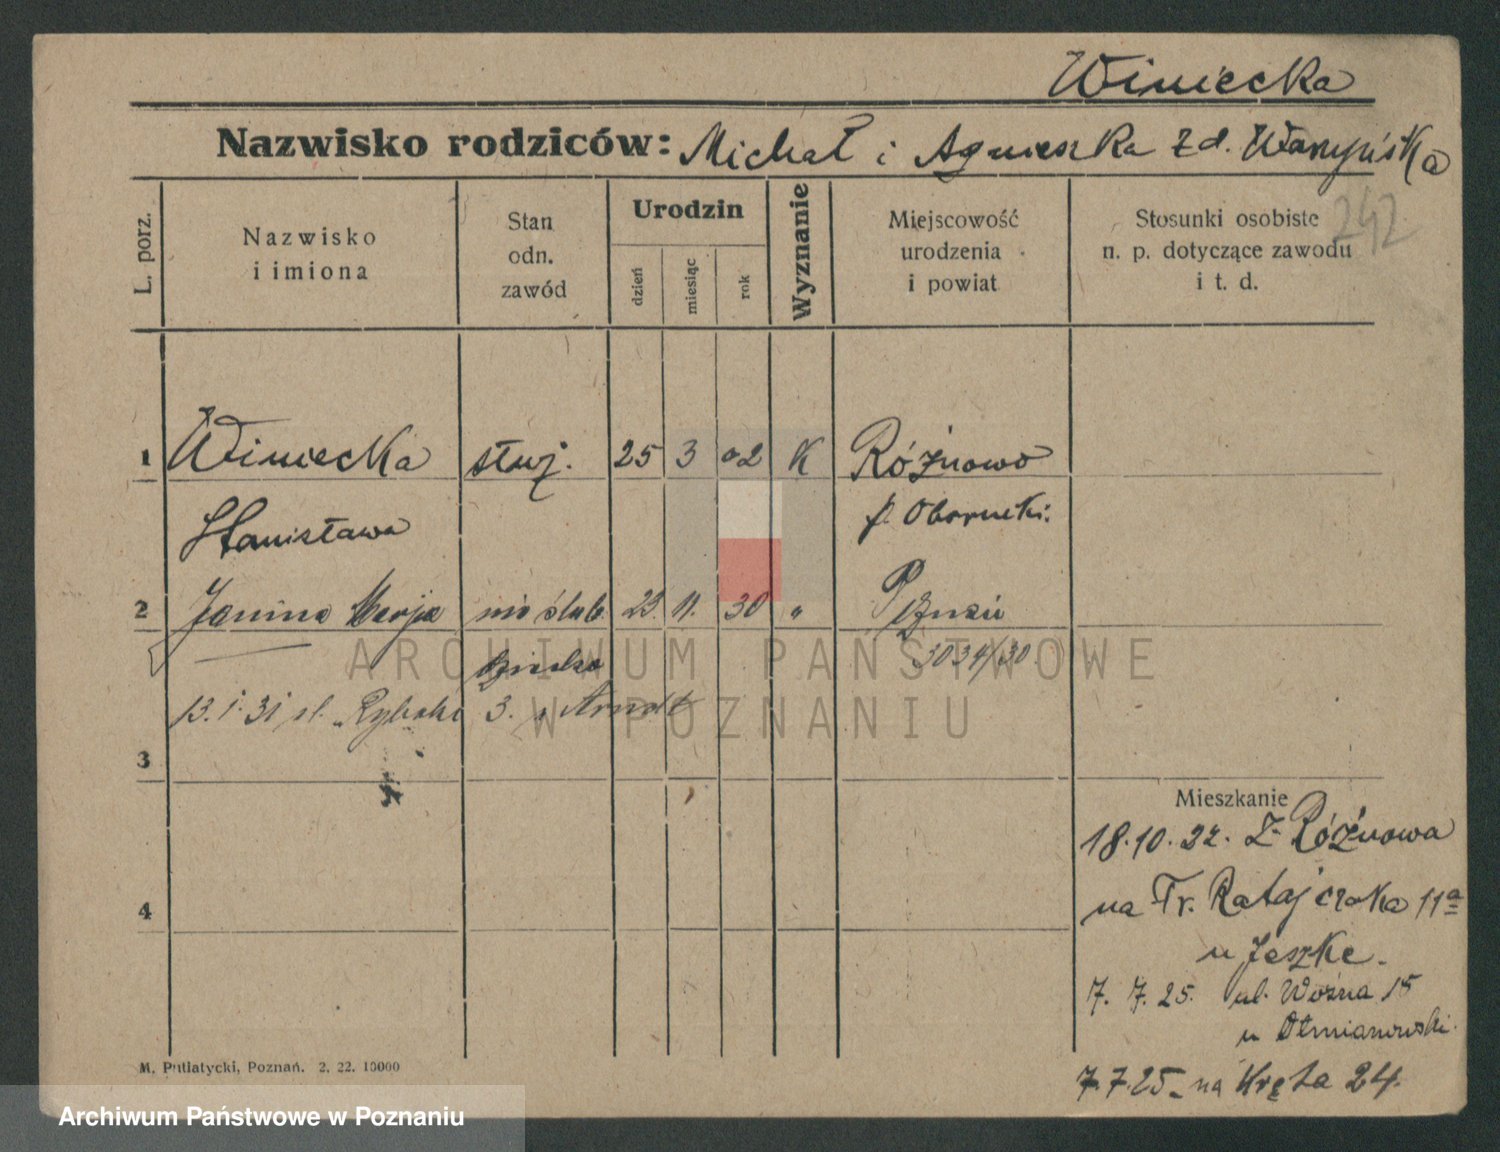 Winiecka
Nazwisko rodziców: Michał i Agnieszka zd. Warzyńska
L. porz.
Nazwisko
i imiona
Stan
odn.
zawód
Urodzin
dzień
miesiąc
rok
Wyznanie
Miejscowość
urodzenia
i powiat
Stosunki osobiste
n. p. dotyczące zawodu
i t. d.
242
1 Winiecka służ. 25 3 02 K Różnowo
Stanisława p. Obornicki.
2 Janina Marja nie ślub. 23. 11. 30 "
dziecko 3034/30.
13.1.31 3. Arndt
3
Mieszkanie
18.10.22. z Różnowa
na Fr. Ratajczaka 11a
4
u Jeszke.
7. 7. 25. ul. Woźna 15
u
7.7.25 na Kręta 24.
M. Putiatycki, Poznań. 2. 22. 10000
ARCHIWUM PAŃSTWOWE
W POZNANIU
Archiwum Państwowe w Poznaniu